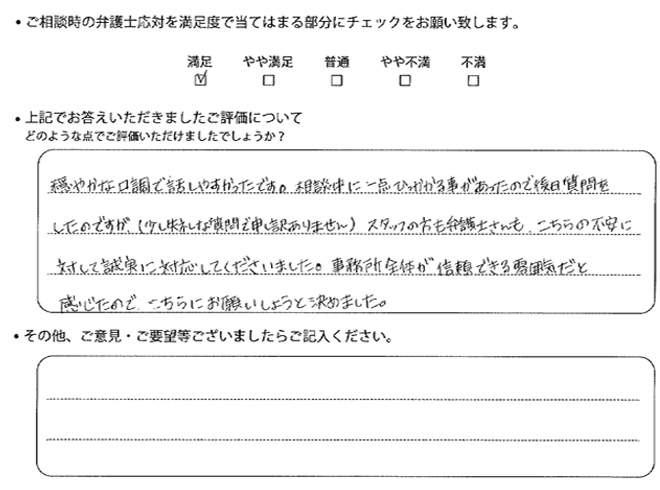 ・ご相談時の弁護士応対を満足度で当てはまる部分にチェックをお願い致します。
満足 やや満足 普通 やや不満 不満
・上記でお答えいただきましたご評価について
どのような点でご評価いただけましたでしょうか？
穏やかな口調で話しやすかったです。相談中に一点ひっかかる事があったので後日質問を
したのですが、(少し失礼な質問で申し訳ありません) スタッフの方も弁護士さんも、こちらの不安に
対して誠実に対応してくださいました。事務所全体が信頼できる雰囲気だと
感じたので、こちらにお願いしようと決めました。
・その他、ご意見・ご要望等ございましたらご記入ください。